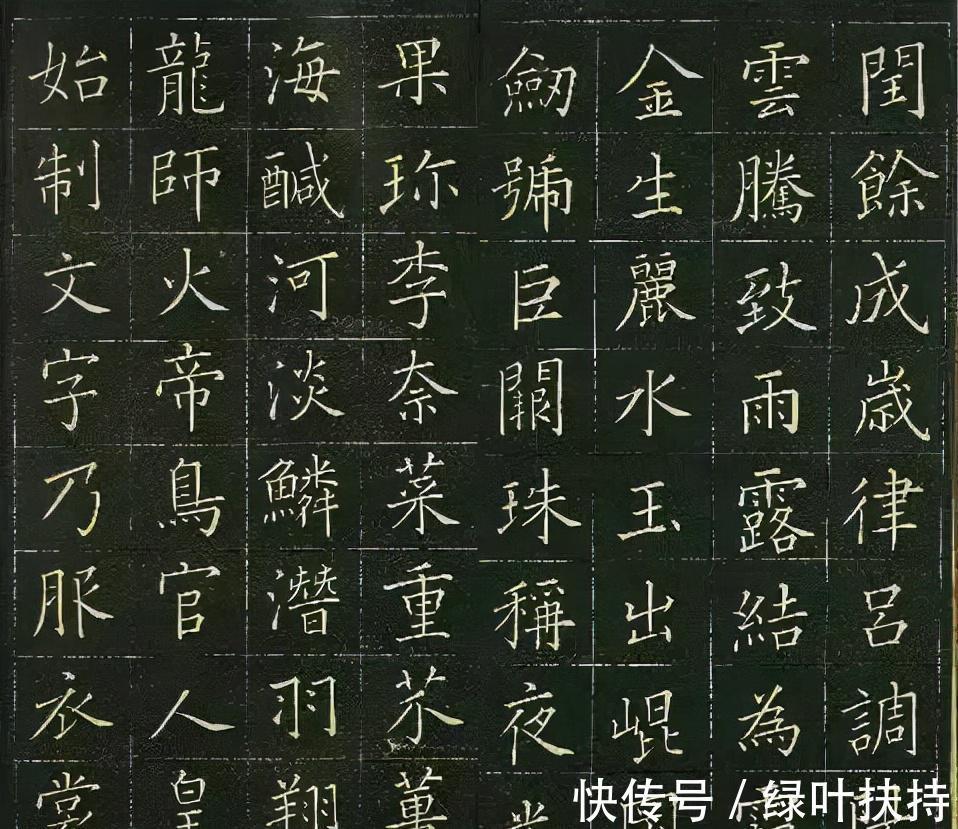 閏餘成歲律呂調
雲騰致雨露結為
金生麗水玉出崐
劒號巨闕珠稱夜光
果珎李奈菜重芥
海醎河淡鱗潛羽翔
龍師火帝鳥官人皇
始制文字乃服衣裳
快传号 / 绿叶扶持